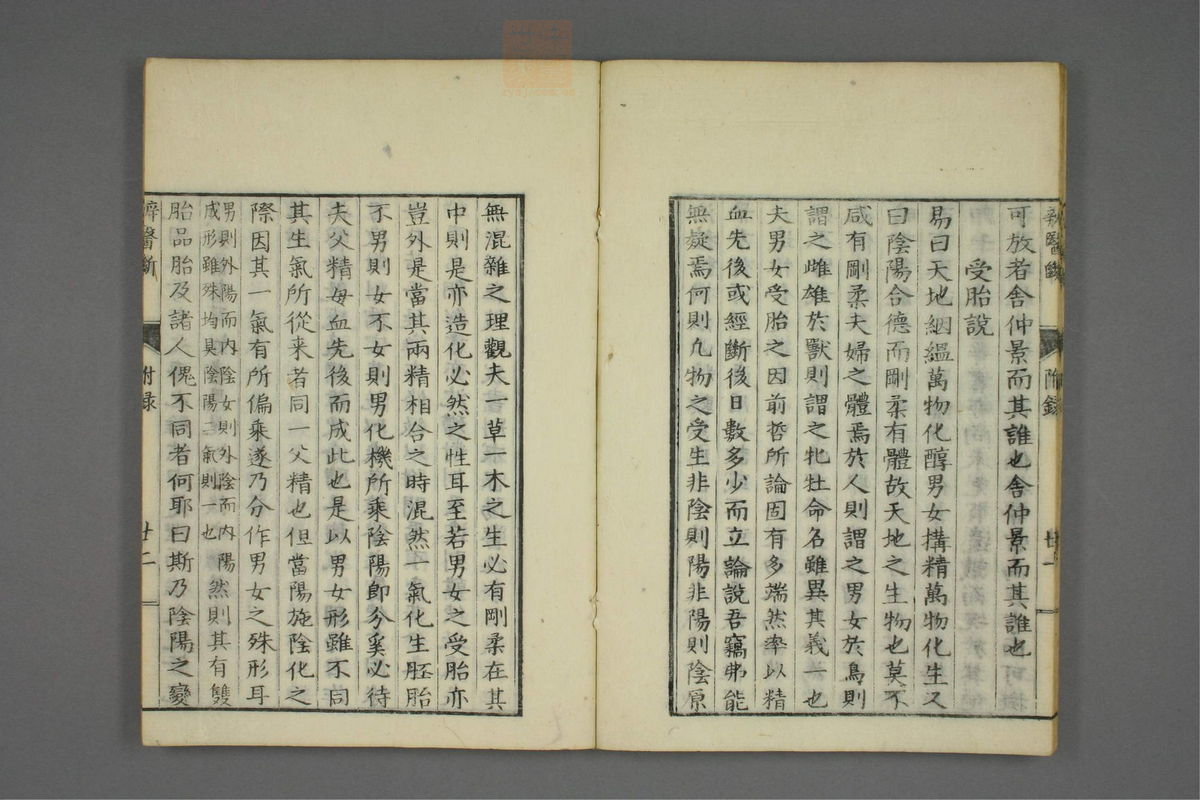 辨醫斷　附録　廿一
可放者舍仲景而其誰也舍仲景而其誰也
受胎說
易曰天地絪縕萬物化醇男女搆精萬物化生又
曰陰陽合德而剛柔有體故天地之生物也莫不
咸有剛柔夫婦之體焉於人則謂之男女於鳥則
謂之雌雄於獸則謂之牝牡命名雖異其義一也
夫男女受胎之因前哲所論固有多端然率以精
血先後或經斷後日數多少而立論說吾竊弗能
無疑焉何則凡物之受生非陰則陽非陽則陰原
無混雜之理觀夫一草一木之生必有剛柔在其
中則是亦造化必然之性耳至若男女之受胎亦
豈外是當其兩精相合之時混然一氣化生胚胎
不男則女不女則男化機所乘陰陽卽分奚必待
夫父精母血先後而成此也是以男女形雖不同
其生氣所從来者同一父精也但當陽施陰化之
際因其一氣有所偏乘遂乃分作男女之殊形耳
男則外陽而内陰女則外陰而内陽然則其有雙
成形雖殊均具陰陽二氣則一也
胎品胎及諸人傀不同者何耶曰斯乃陰陽之變
辨醫斷　附録　廿二